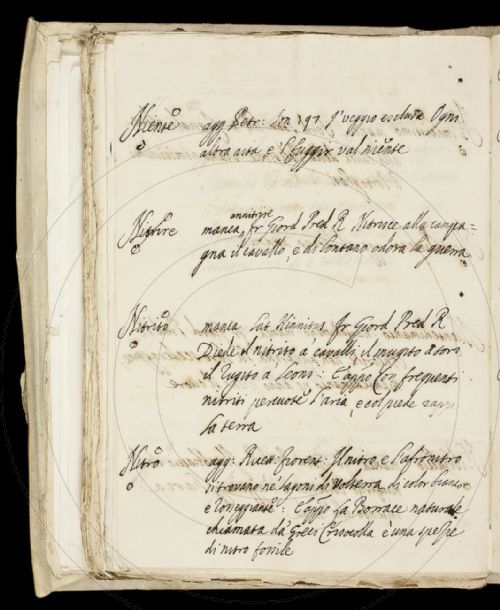 Niente agg Petr: Son 191 I' veggio esclusa Ogni
altra aita, e 'l fuggir val niente
Nitrire manca, annitrire fr Giord Pred R Nitrisce alla campa=
gna il cavallo, e di lontano odora la guerra
Nitrito manca Lat Hinnitus fr Giord Pred R
Diede il nitrito a' cavalli, il mugito a tori
il rugito a Leoni: E appo Con frequenti
nitriti percuote l'aria, e col piede
la terra
Nitro agg: Ricett: fiorent: Il nitro e l'afronitro
si trovano ne lagoni di Volterra di color bianco
e rosseggiante: E appo La Borrace naturale
chiamata da Greci Crisocolla è una spezie
di nitro fossile